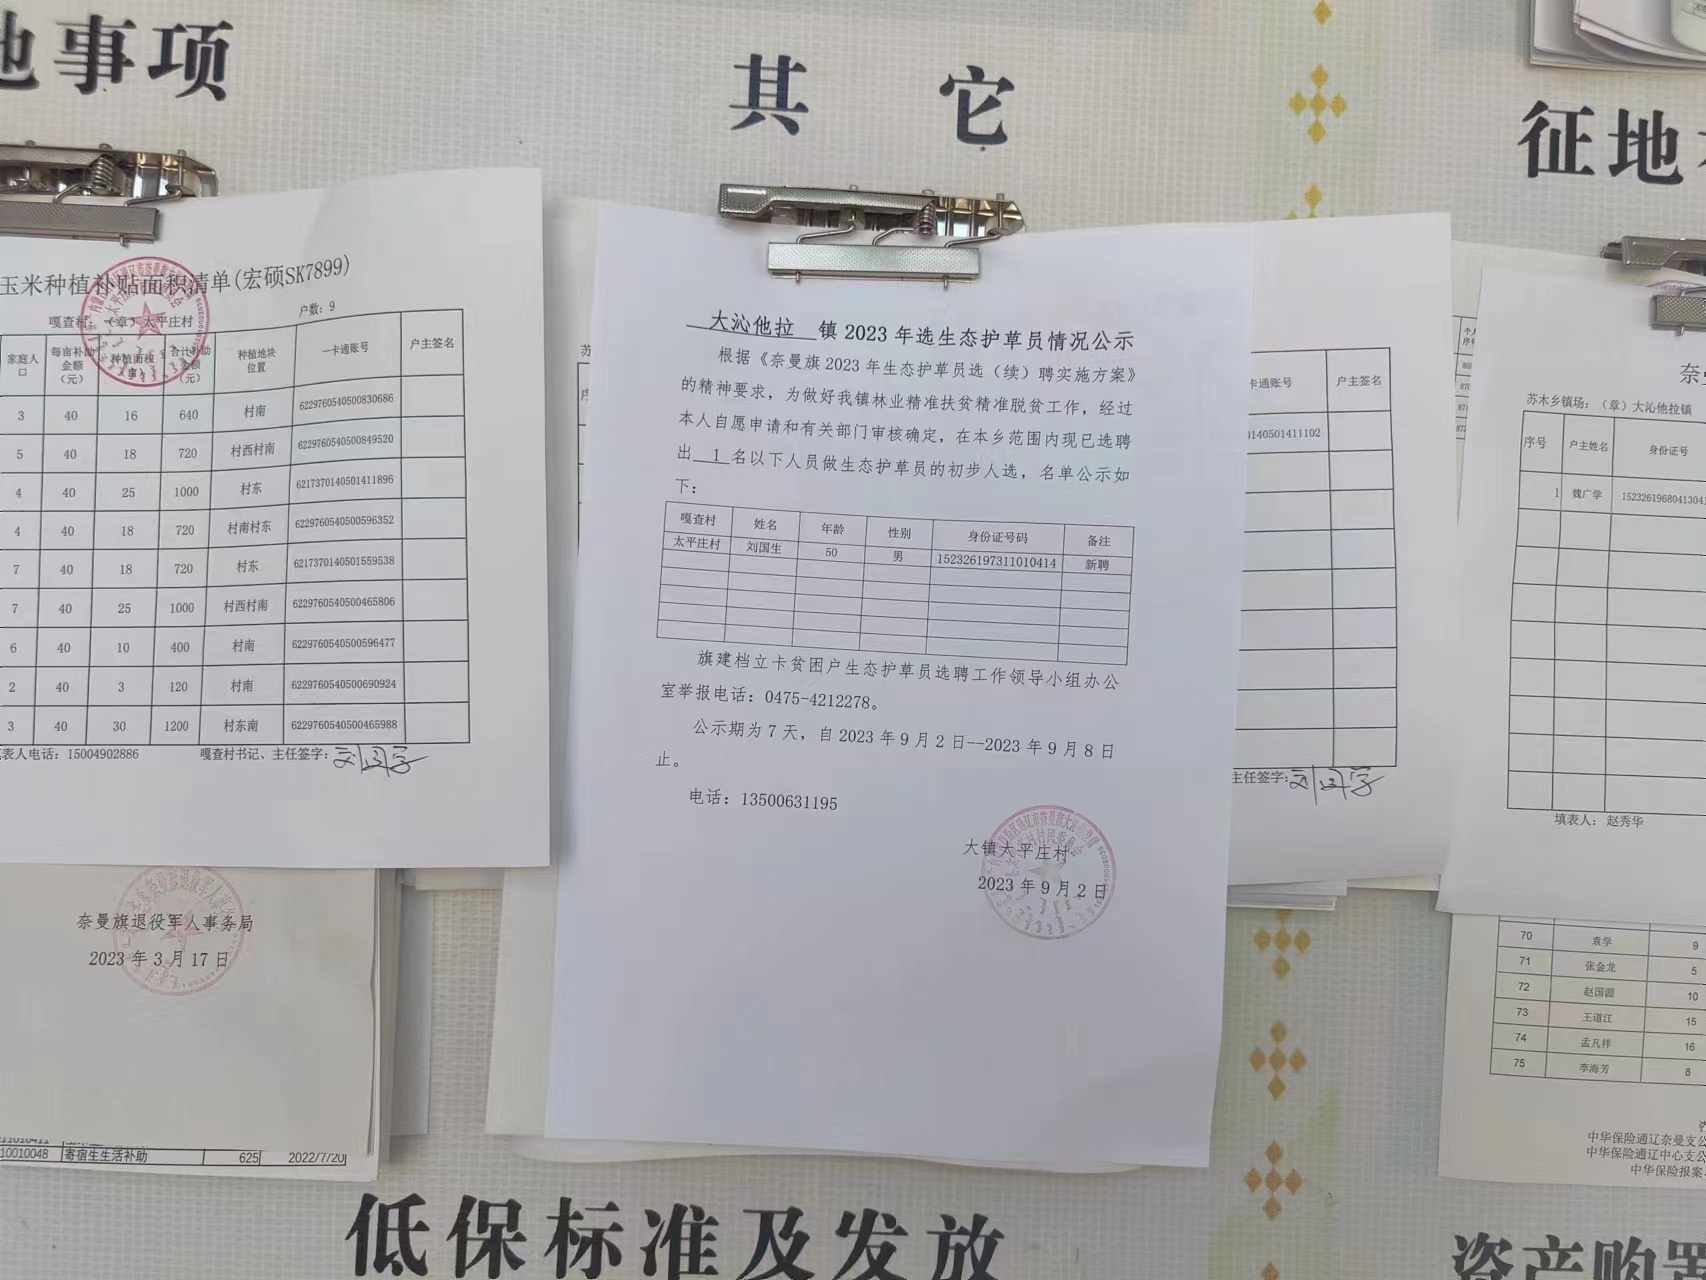 地事项
其 它
征地
玉米种植补贴面积清单(宏硕SK7899)
嘎查村：（章）太平庄村 户数：9
家庭人口 每亩补助金额（元） 种植面积（亩） 合计补助金额（元） 种植地块位置 一卡通账号 户主签名
3 40 16 640 村南 6229760540500830686
5 40 18 720 村西村南 6229760540500849520
4 40 25 1000 村东 6217370140501411896
4 40 18 720 村南村东 6229760540500596352
7 40 18 720 村东 6217370140501559538
7 40 25 1000 村西村南 6229760540500465806
6 40 10 400 村南 6229760540500596477
2 40 3 120 村南 6229760540500690924
3 40 30 1200 村东南 6229760540500465988
表人电话：15004902886 嘎查村书记、主任签字：
奈曼旗退役军人事务局
2023 年 3 月 17 日
10010048 寄宿生生活补助 625 2022/7/20
大沁他拉 镇 2023 年选生态护草员情况公示
根据《奈曼旗 2023 年生态护草员选（续）聘实施方案》
的精神要求，为做好我镇林业精准扶贫精准脱贫工作，经过
本人自愿申请和有关部门审核确定，在本乡范围内现已选聘
出 1 名以下人员做生态护草员的初步人选，名单公示如
下：
嘎查村 姓名 年龄 性别 身份证号码 备注
太平庄村 刘国生 50 男 152326197311010414 新聘
旗建档立卡贫困户生态护草员选聘工作领导小组办公
室举报电话：0475-4212278。
公示期为 7 天，自 2023 年 9 月 2 日--2023 年 9 月 8 日
止。
电话：13500631195
大镇太平庄村
2023 年 9 月 2 日
卡通账号 户主签名
0140501411102
主任签字：
苏木乡镇场：（章）大沁他拉镇
序号 户主姓名 身份证号
1 魏广学 152326196804130
填表人： 赵秀华
70 袁学 9
71 张金龙 5
72 赵国源 10
73 王道江 15
74 孟凡祥 16
75 季海芳 8
中华保险通辽奈曼支公
中华保险通辽中心支公
中华保险报案
低保标准及发放
资产购置